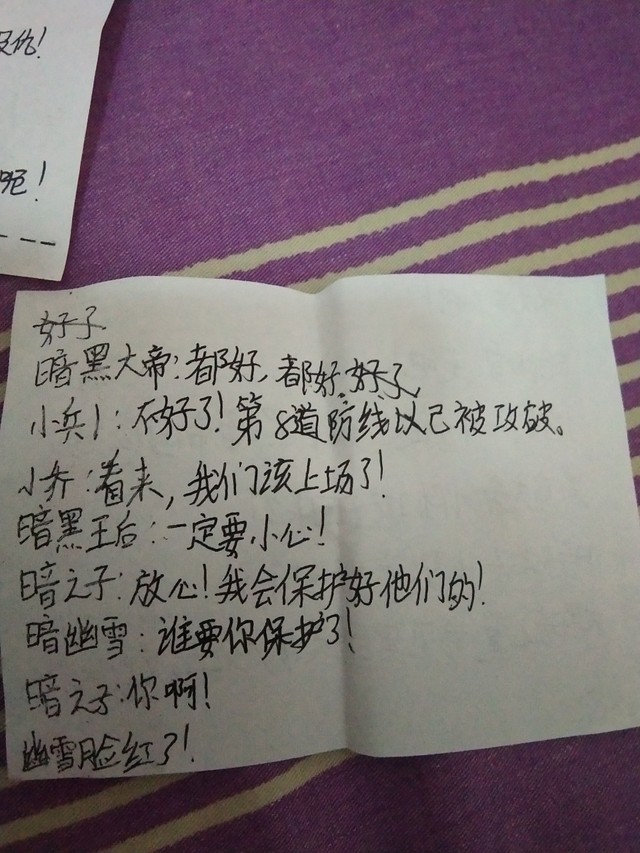 没仇!
呢!
好了
暗黑大帝:都好,都好,好了
小兵1:不好了!第8道防线以己被攻破。
小乔:看来,我们该上场了!
暗黑王后:一定要小心!
暗之子:放心!我会保护好他们的!
暗幽雪:谁要你保护了!
暗之子:你啊!
幽雪脸红了!